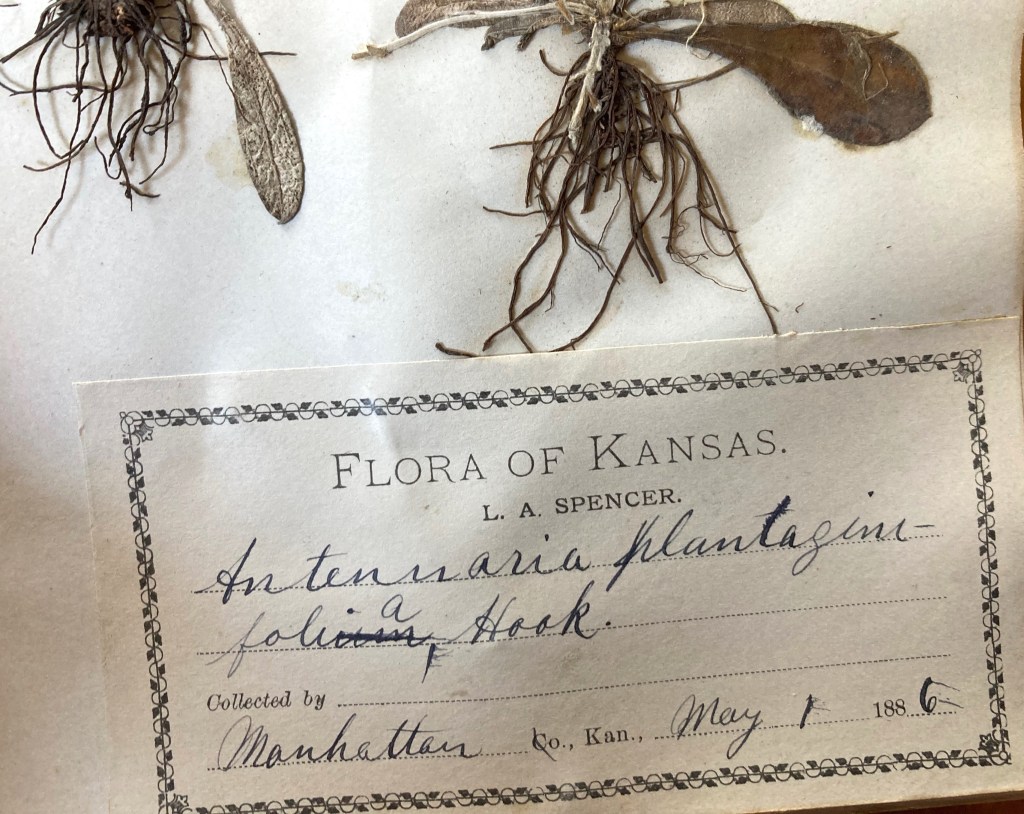 FLORA OF KANSAS.
L. A. SPENCER.
Antennaria plantagini-
folia, Hook.
Collected by
Manhattan Co., Kan., May 1 188